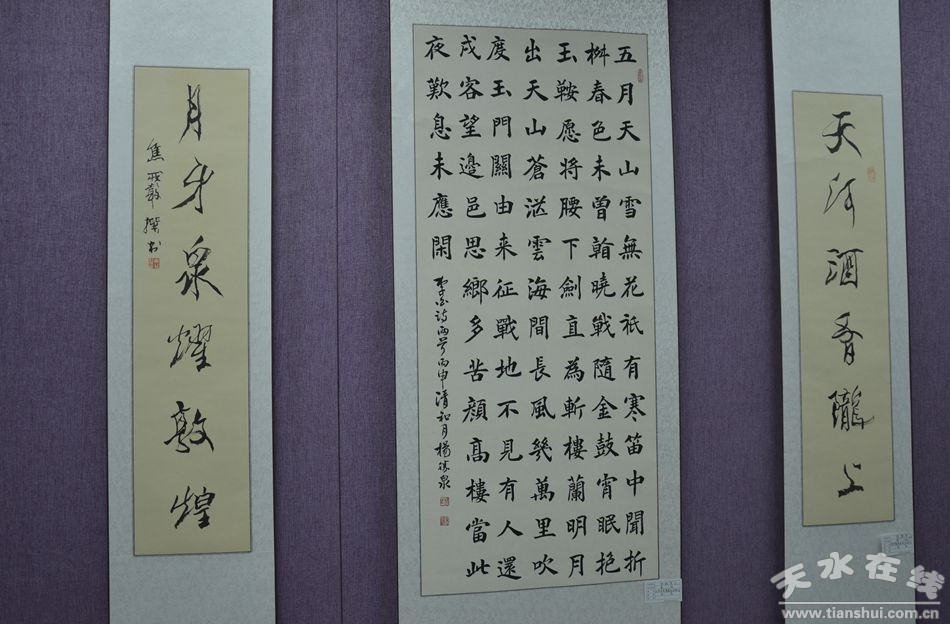 天河酒香隴上
五月天山雪無花祇有寒笛中聞折
柳春色未曾看曉戰隨金鼓宵眠抱
玉鞍愿將腰下劍直為斬樓蘭明月
出天山蒼茫雲海間長風幾萬里吹
度玉門關由来征戰地不見有人還
戍客望邊邑思鄉多苦顏高樓當此
夜歎息未應閑
李白詩兩首丙申清和月楊勝泉
月牙泉耀敦煌
焦 撰书
天水在线
www.tianshui.com.cn